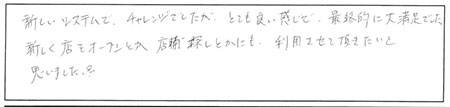 新しいシステムで、チャレンジでしたが、とても良い感じで、最終的に大満足でした
新しく店をオープンとか、店舗探しとかにも、利用させて頂きたいと
思いました。